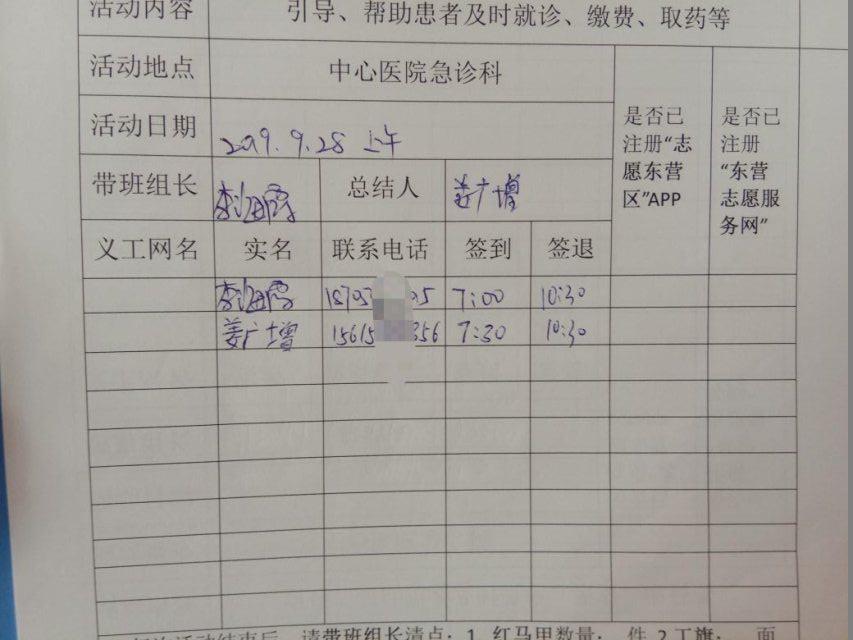 活动内容 引导、帮助患者及时就诊、缴费、取药等
活动地点 中心医院急诊科
活动日期 2019.9.28 上午
带班组长 李海霞 总结人 姜广增
是否已注册“志愿东营区”APP
是否已注册“东营志愿服务网”
义工网名 实名 联系电话 签到 签退
李海霞 18705 05 7:00 10:30
姜广增 15615 356 7:30 10:30
请带班组长清点：1.红马甲数量： 件 2 工旗： 面